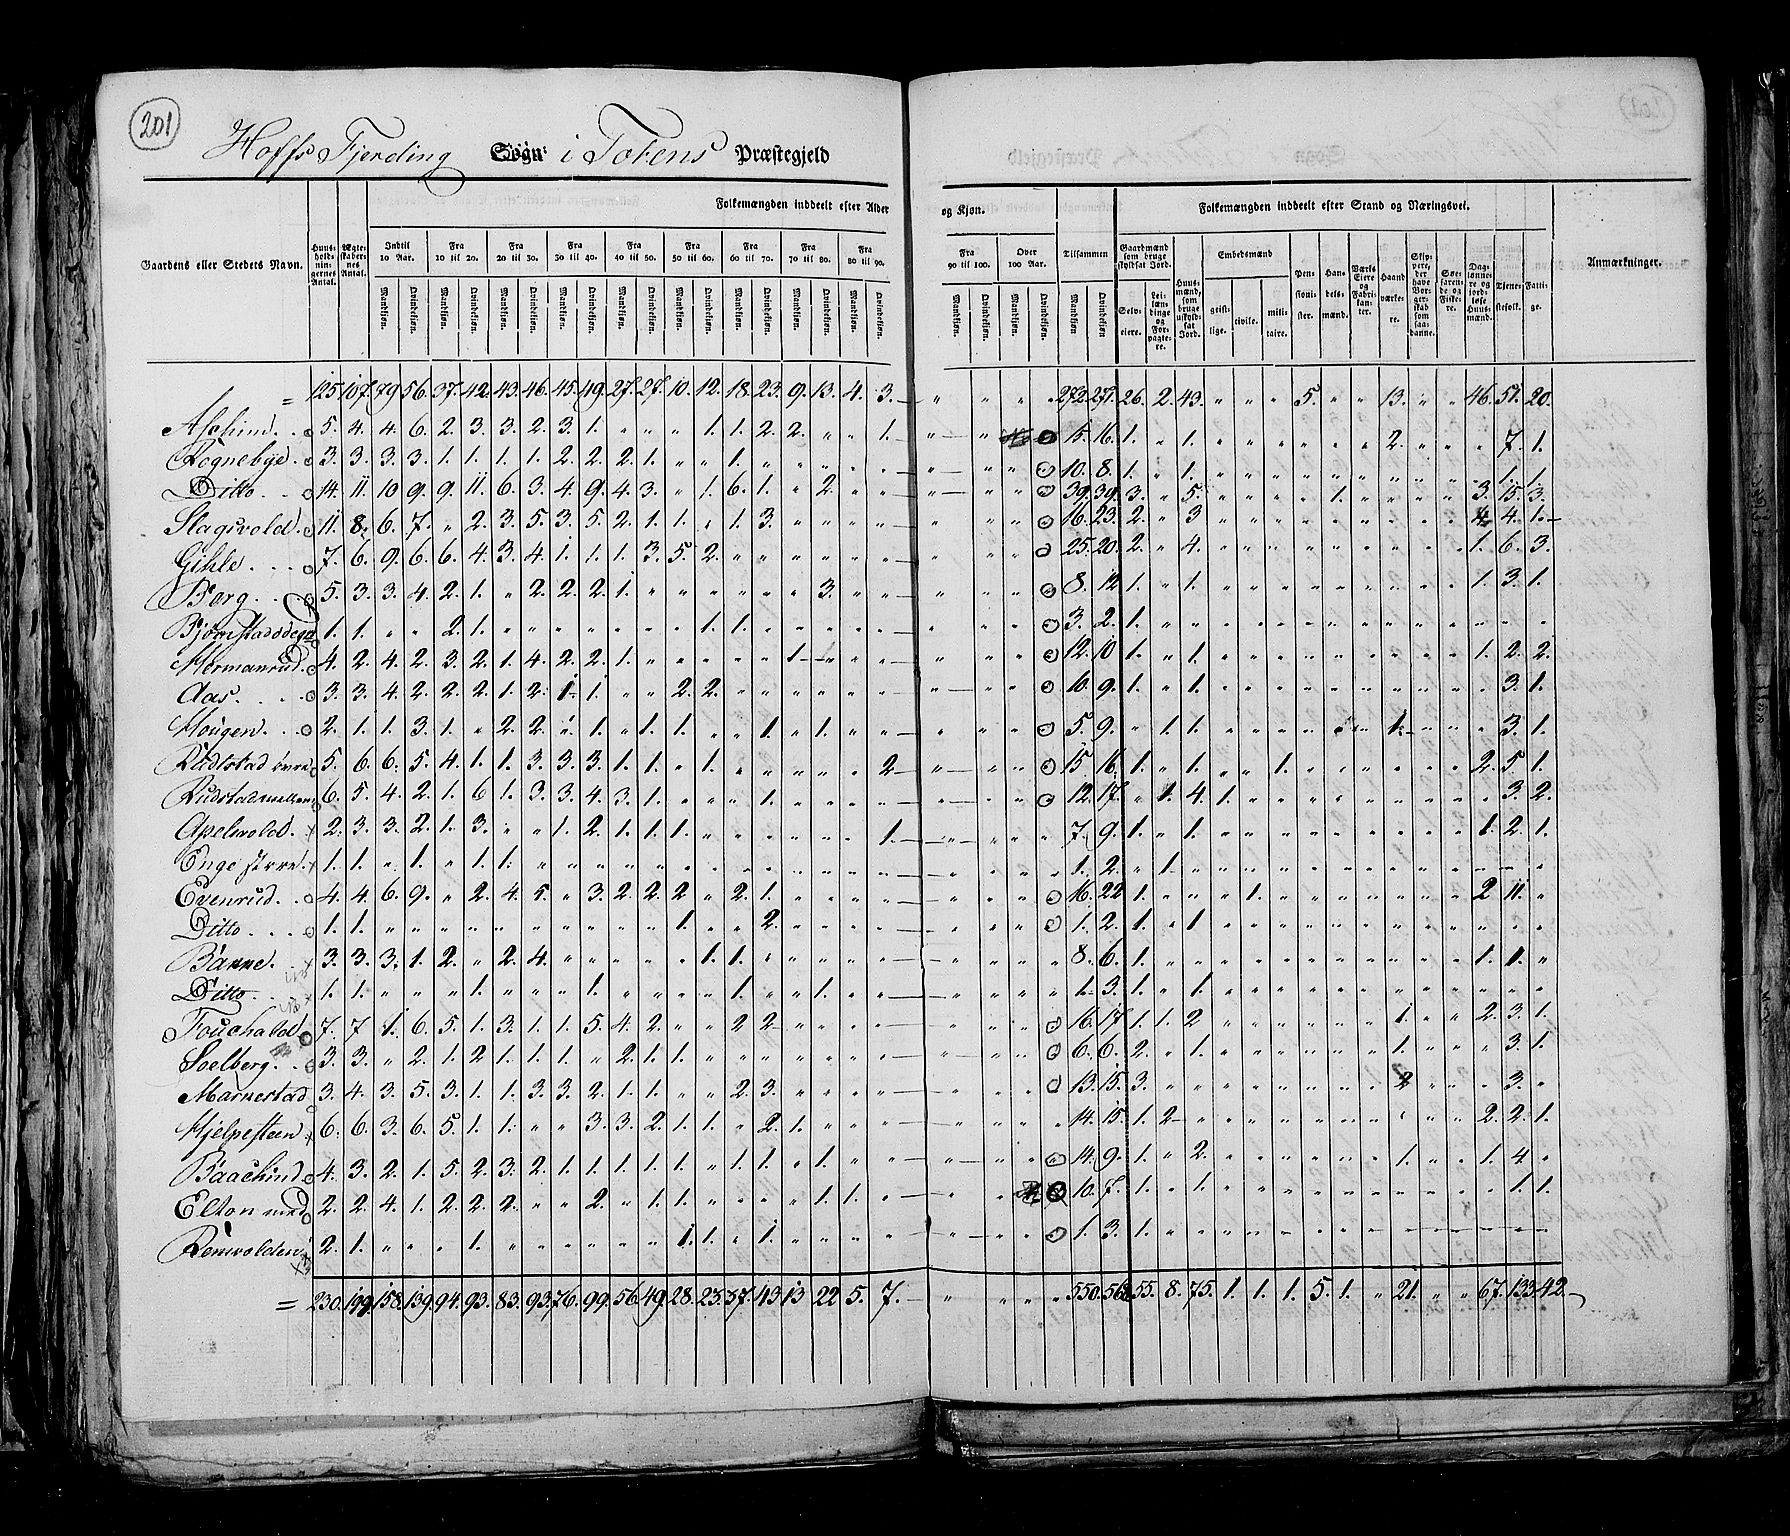 201
Hoffs Fjerding Sogn i Totens Præstegjeld
Gaardens eller Stedets Navn.
Huusholdningernes Antal.
Ægteskabernes Antal.
Folkemængden inddeelt efter Alder og Kjøn.
Indtil 10 Aar. Fra 10 til 20. Fra 20 til 30. Fra 30 til 40. Fra 40 til 50. Fra 50 til 60. Fra 60 til 70. Fra 70 til 80. Fra 80 til 90. Fra 90 til 100. Over 100 Aar. Tilsammen
Mandkjøn. Qvindekjøn.
Folkemængden inddeelt efter Stand og Næringsvei.
Gaardmænd som bruge skyldsat Jord.
Selveiere.
Leilændinge og Forpagtere.
Huusmænd, som bruge uskyldsat Jord.
Embedsmænd
geistlige. civile. militaire.
Pensionister.
Handelsmænd.
Værks Eiere og Fabrikanter.
Haandværkere.
Skippere, der have Borgerskab som saadanne.
Søefarende og Fiskere.
Daglønnere og jordløse Huusmænd.
Tjenestefolk.
Fattige.
Anmærkninger.
= 125. 107. 79. 56. 37. 42. 43. 46. 45. 49. 27. 27. 10. 12. 18. 23. 9. 13. 4. 3. — " " " " 272. 271. 26. 2. 43. " " " 5. " " 13. " " 46. 51. 20.
Aschind. 5. 4. 4. 6. 2. 3. 3. 2. 3. 1. " " " 1. 1. 2. 2. " " 1. 15. 16. 1. " 1. " " " " " " 2. " " " 7. 1.
Rognebye. 3. 3. 3. 3. 1. 1. 1. 1. 2. 2. 2. 1. " " 1. " " " " " 10. 8. 1. " 1. " " " " " " " " " " 1. 1.
Ditto. 14. 11. 10. 9. 9. 11. 6. 3. 4. 9. 4. 3. " 1. 6. 1. " 2. " " 39. 39. 3. " 5. " " " " 1. " " " " 3. 15. 3.
Slagsvold. 11. 8. 6. 7. " 2. 3. 5. 3. 5. 2. 1. 1. " 1. 3. " " " " 16. 23. 2. " 3 " " " " " " " " " 4 4. 1.
Gihle. 7. 6. 9. 6. 6. 4. 3. 4. 1. 1. 1. 3. 5. 2. " " " " " " 25. 20. 2. " 4. " " " " " " " " " 1. 6. 3.
Berg. 5. 3. 3. 4. 2. 1. " 2. 2. 2. 1. " " " " " " 3. " " 8. 12 1. " 1. " " " " " " " " " 1. 3. 1.
1. 1. " " 2. 1. " " " " " " " 1. 1. " " " " " 3. 2. 1. " " " " " " " " " " " " " "
Hermanrud. 4. 2. 4. 2. 3. 2. 1. 4. 2. 2. 1. " " " " " 1. " " " 12. 10 1. " 1. " " " " " " " " " 1. 2. 2.
Aas. 3. 3. 4. 2. 2. 2. 1. 2. 1. 1. " " 2. 2. " " " " " " 10. 9. 1. " 1. " " " " " " " " " " 3. 1.
Hougen. 2. 1. 1. 3. 1. " 2. 2. 1. 1. " 1. 1. " " 1. " 1. " " 5. 9. " 1. 1. " " " " " " 1. " " " 3. 1.
Rudstad øvre 5. 6. 6. 5. 4. 1. 1. 3. 3. 3. 1. 1. " 1. " " " " " 2 15 16. 1. " 1. " " 1. " " " " " " 2. 5. 1.
Rudstad mellem 6. 5. 4. 2. 1. 6 1. 3. 3. 4. 3. 1. " " " 1. " " " " 12. 17. " 1. 4. 1. " " " " " " " " " 3. 2.
Apelsvold. 2. 3. 3. 2. 1. 3. " " 1. 2. 1. 1. 1. " " " " " " 1. 7. 9. 1. " 1. " " " " " " " " " 1. 2. 1.
Enge større. 1. 1. " 1. " 1. 1. " " " " " " " " " " " " " 1. 2. " 1. " " " " " " " " " " " " "
Evenrud. 4. 4. 6. 9. " 2. 4. 5. " 3. 2. 2. 2 " 2. 1. " " " " 16. 22 1. " " " 1. " " " " " " " 2 11. "
Ditto. 1. 1. " " " " " " " " " " 1. " " 2. " " " " 1. 2. 1. " 1. " " " " " " " " " " " "
3. 3. 3. 1. 2. " 2. 4. " " " " " 1. 1. " " " " " 8. 6. 1. " " " " " " " " " " " 1. 1. "
Ditto. 1. 1. " " " 1. " " " 1. " " " " 1. " " 1. " " 1. 3. 1. " 1. " " " " " " " " " " " "
7. 7 1. 6. 5. 1. 3. 1. 1. 5. 4. 2. " " 2 2 " " " " 16. 17. 1. 1. 2 " " " " " " 1. " " 2. 3. 1.
Soelberg. 3. 3. " 2. 1. 2 1. 1. 1. " 2. 1. 1. " " " " " " " 6. 6. 2. " 1. " " " " " " 1. " " " 3. 1.
Marnestad 3. 4. 3. 5. 3. 1. 1. 3. 3. 2. 1. 1. " " 2. 3. " " " " 13. 15. 3. " " " " " " " " 2 " " " 3. "
Hjelpesteen 6. 6. 3. 6. 5. 1. 1. " " 3. 3. 2. 1. 1. " 2. 1. " " " 14. 15. 1. 2 " " " " " " " " " " 2. 2. 1.
Baachind 4. 3. 2. 1. 5. 2. 3. 2. 1. 1. 1. 1. 1. " 1. 1. " 1. " " 14. 9. 1. " 2. " " " " " " 1. " " 1. 4 "
Elton med 2. 2. 4. 1. 2. 2. 2. " " 2. " 1. 1. " " " " 1. 1. " 10. 7. 1. " 1. " " " " " " " " " " 1. 1.
Remvolden 2. 1. " " " 1. " " " " " " 1. 1. " 1. " " " " 1. 3. 1. " " " " " " " " " " " " " "
= 230. 199. 158. 139. 94. 93. 83. 93. 76. 99. 56. 49. 28. 23. 37. 43 13 22 5. 7. — " " " " 550. 568. 55. 8. 75. 1. 1. 1. 5. 1. " 21. " " 67. 133. 42.